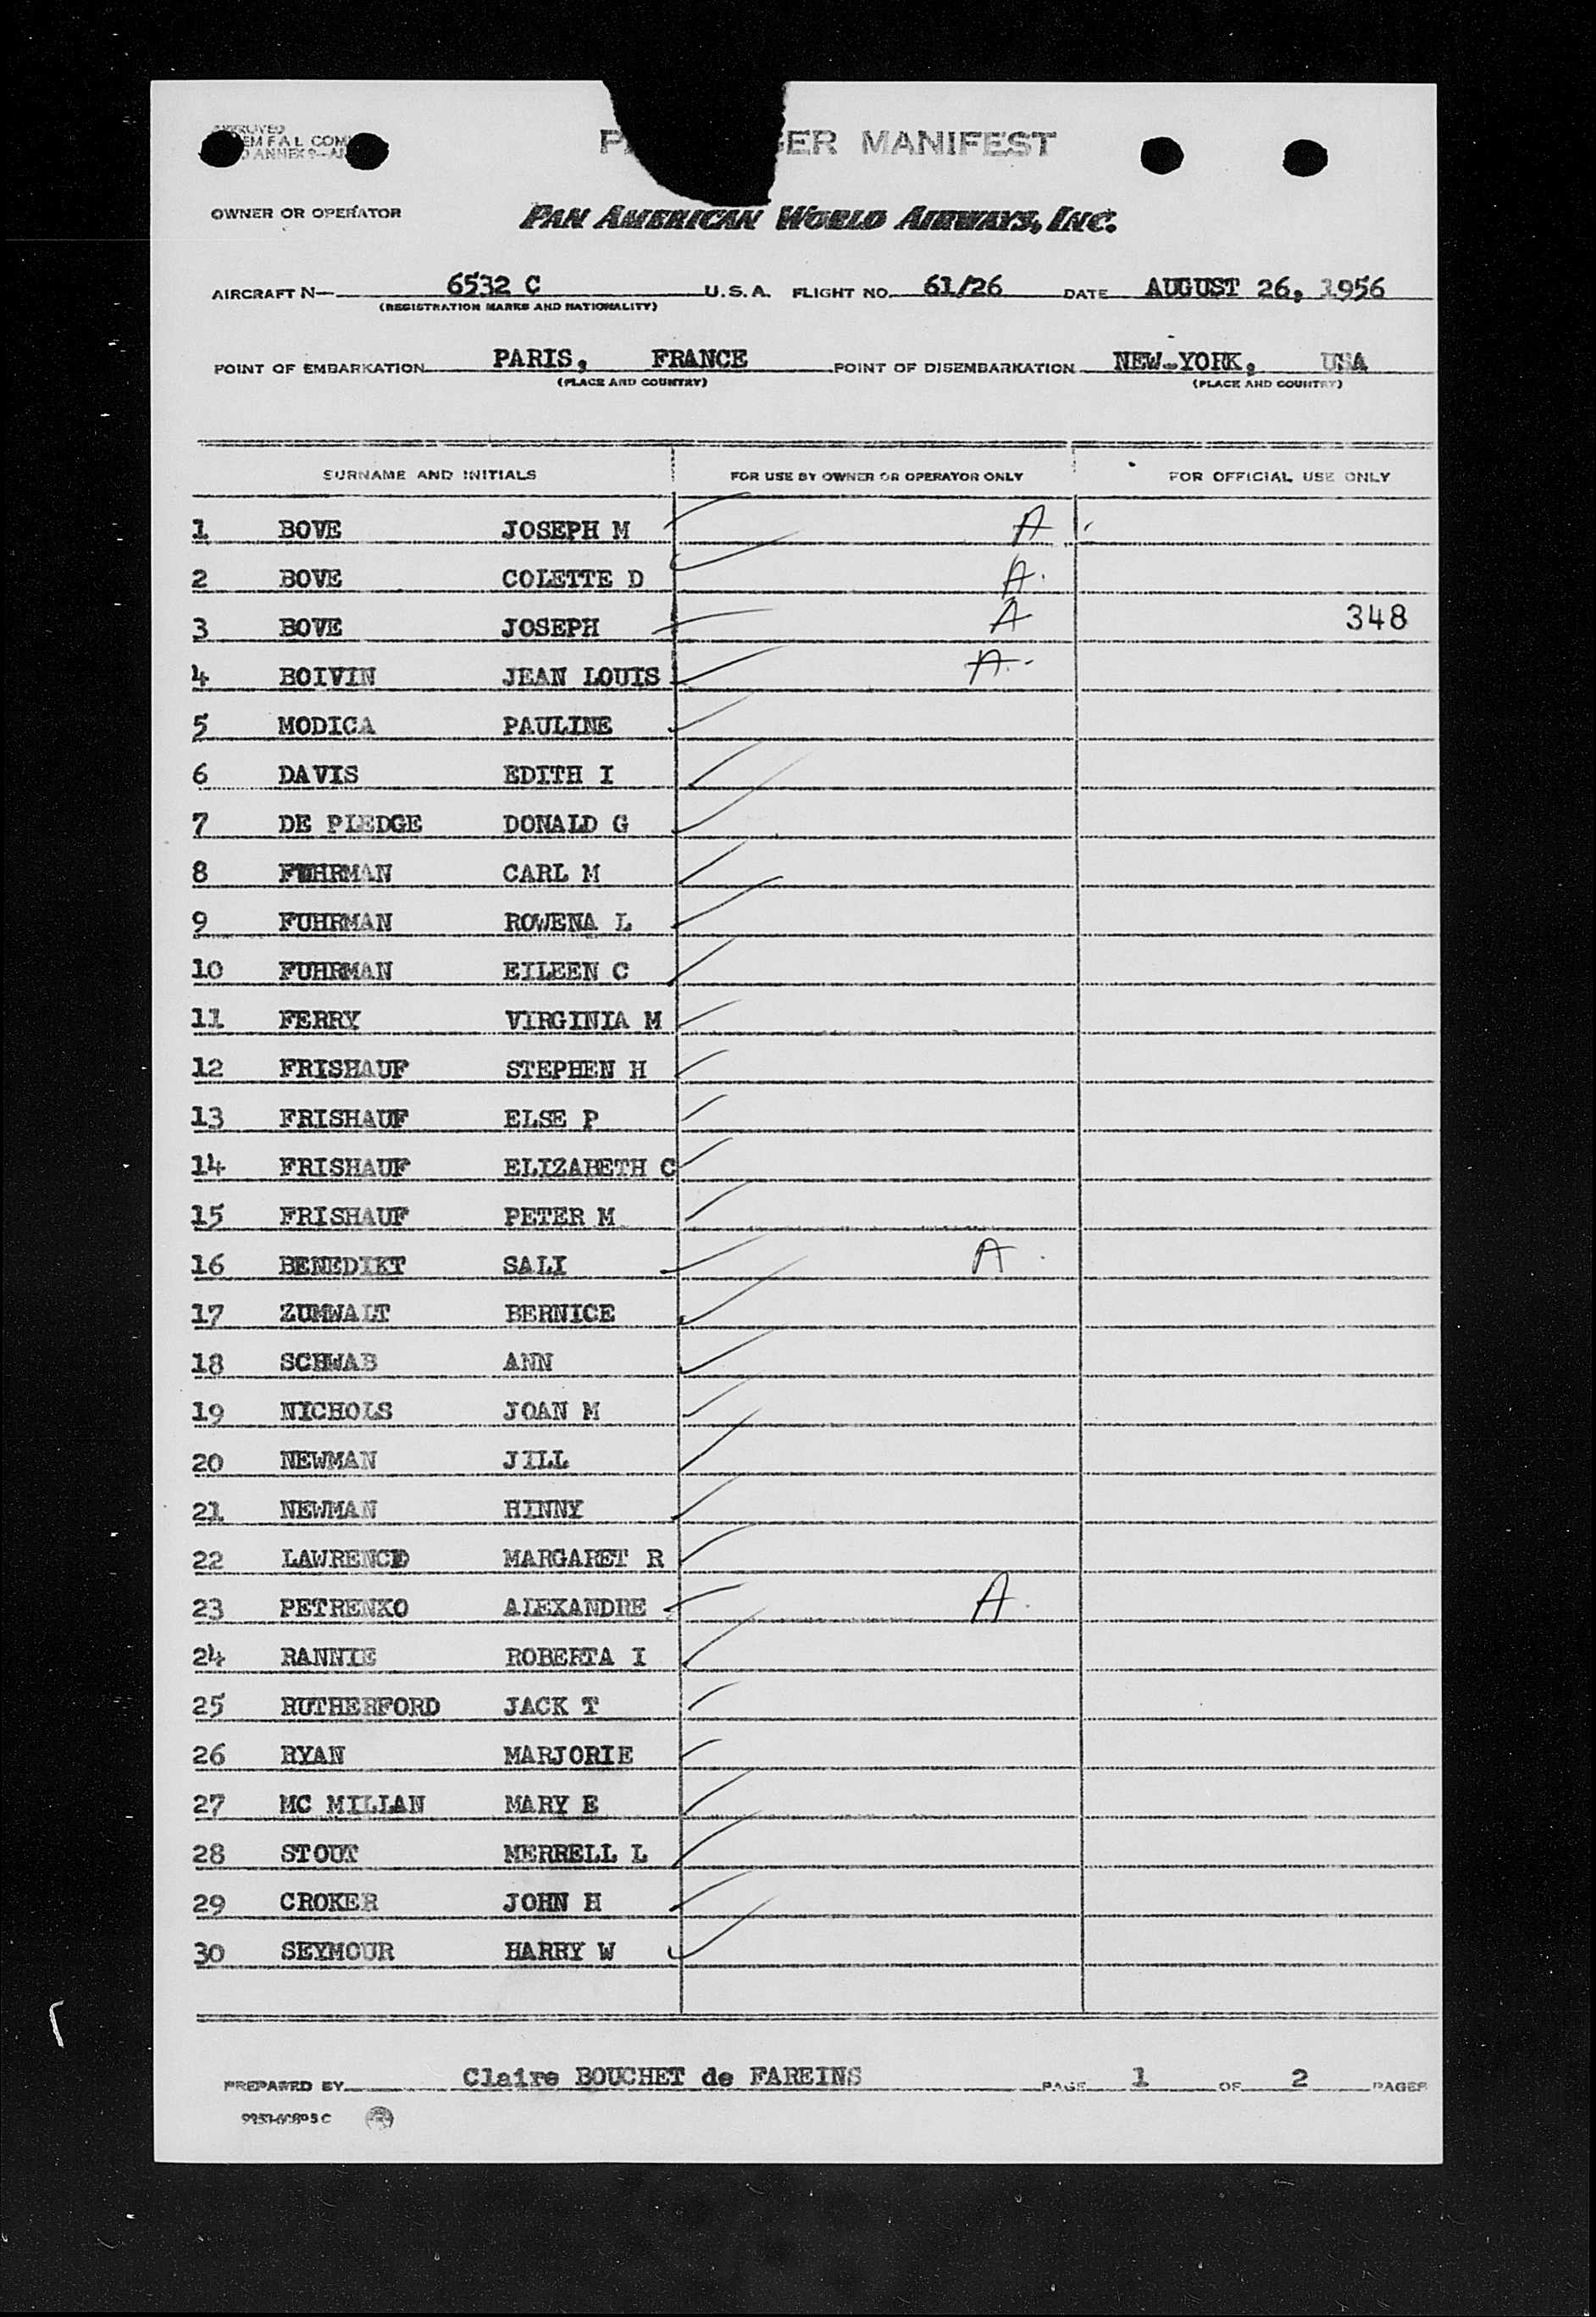 APPROVED
EM F A L COM
ANNEX 9—A
P GER MANIFEST
OWNER OR OPERATOR PAN AMERICAN WORLD AIRWAYS, INC.
AIRCRAFT N— 6532 C U.S.A. FLIGHT NO. 61/26 DATE AUGUST 26, 1956
(REGISTRATION MARKS AND NATIONALITY)
POINT OF EMBARKATION PARIS, FRANCE POINT OF DISEMBARKATION NEW-YORK, USA
(PLACE AND COUNTRY) (PLACE AND COUNTRY)
SURNAME AND INITIALS FOR USE BY OWNER OR OPERATOR ONLY FOR OFFICIAL USE ONLY
1 BOVE JOSEPH M A
2 BOVE COLETTE D A
3 BOVE JOSEPH A 348
4 BOIVIN JEAN LOUIS A
5 MODICA PAULINE
6 DAVIS EDITH I
7 DE PLEDGE DONALD G
8 FUHRMAN CARL M
9 FUHRMAN ROWENA L
10 FUHRMAN EILEEN C
11 FERRY VIRGINIA M
12 FRISHAUF STEPHEN H
13 FRISHAUF ELSE P
14 FRISHAUF ELIZABETH C
15 FRISHAUF PETER M
16 BENEDIKT SALI A
17 ZUMWALT BERNICE
18 SCHWAB ANN
19 NICHOLS JOAN M
20 NEWMAN JILL
21 NEWMAN HINNY
22 LAWRENCE MARGARET R
23 PETRENKO ALEXANDRE A
24 RANNIE ROBERTA I
25 RUTHERFORD JACK T
26 RYAN MARJORIE
27 MC MILLAN MARY E
28 STOUT MERRELL L
29 CROKER JOHN H
30 SEYMOUR HARRY W
PREPARED BY Claire BOUCHET de FAREINS PAGE 1 OF 2 PAGES